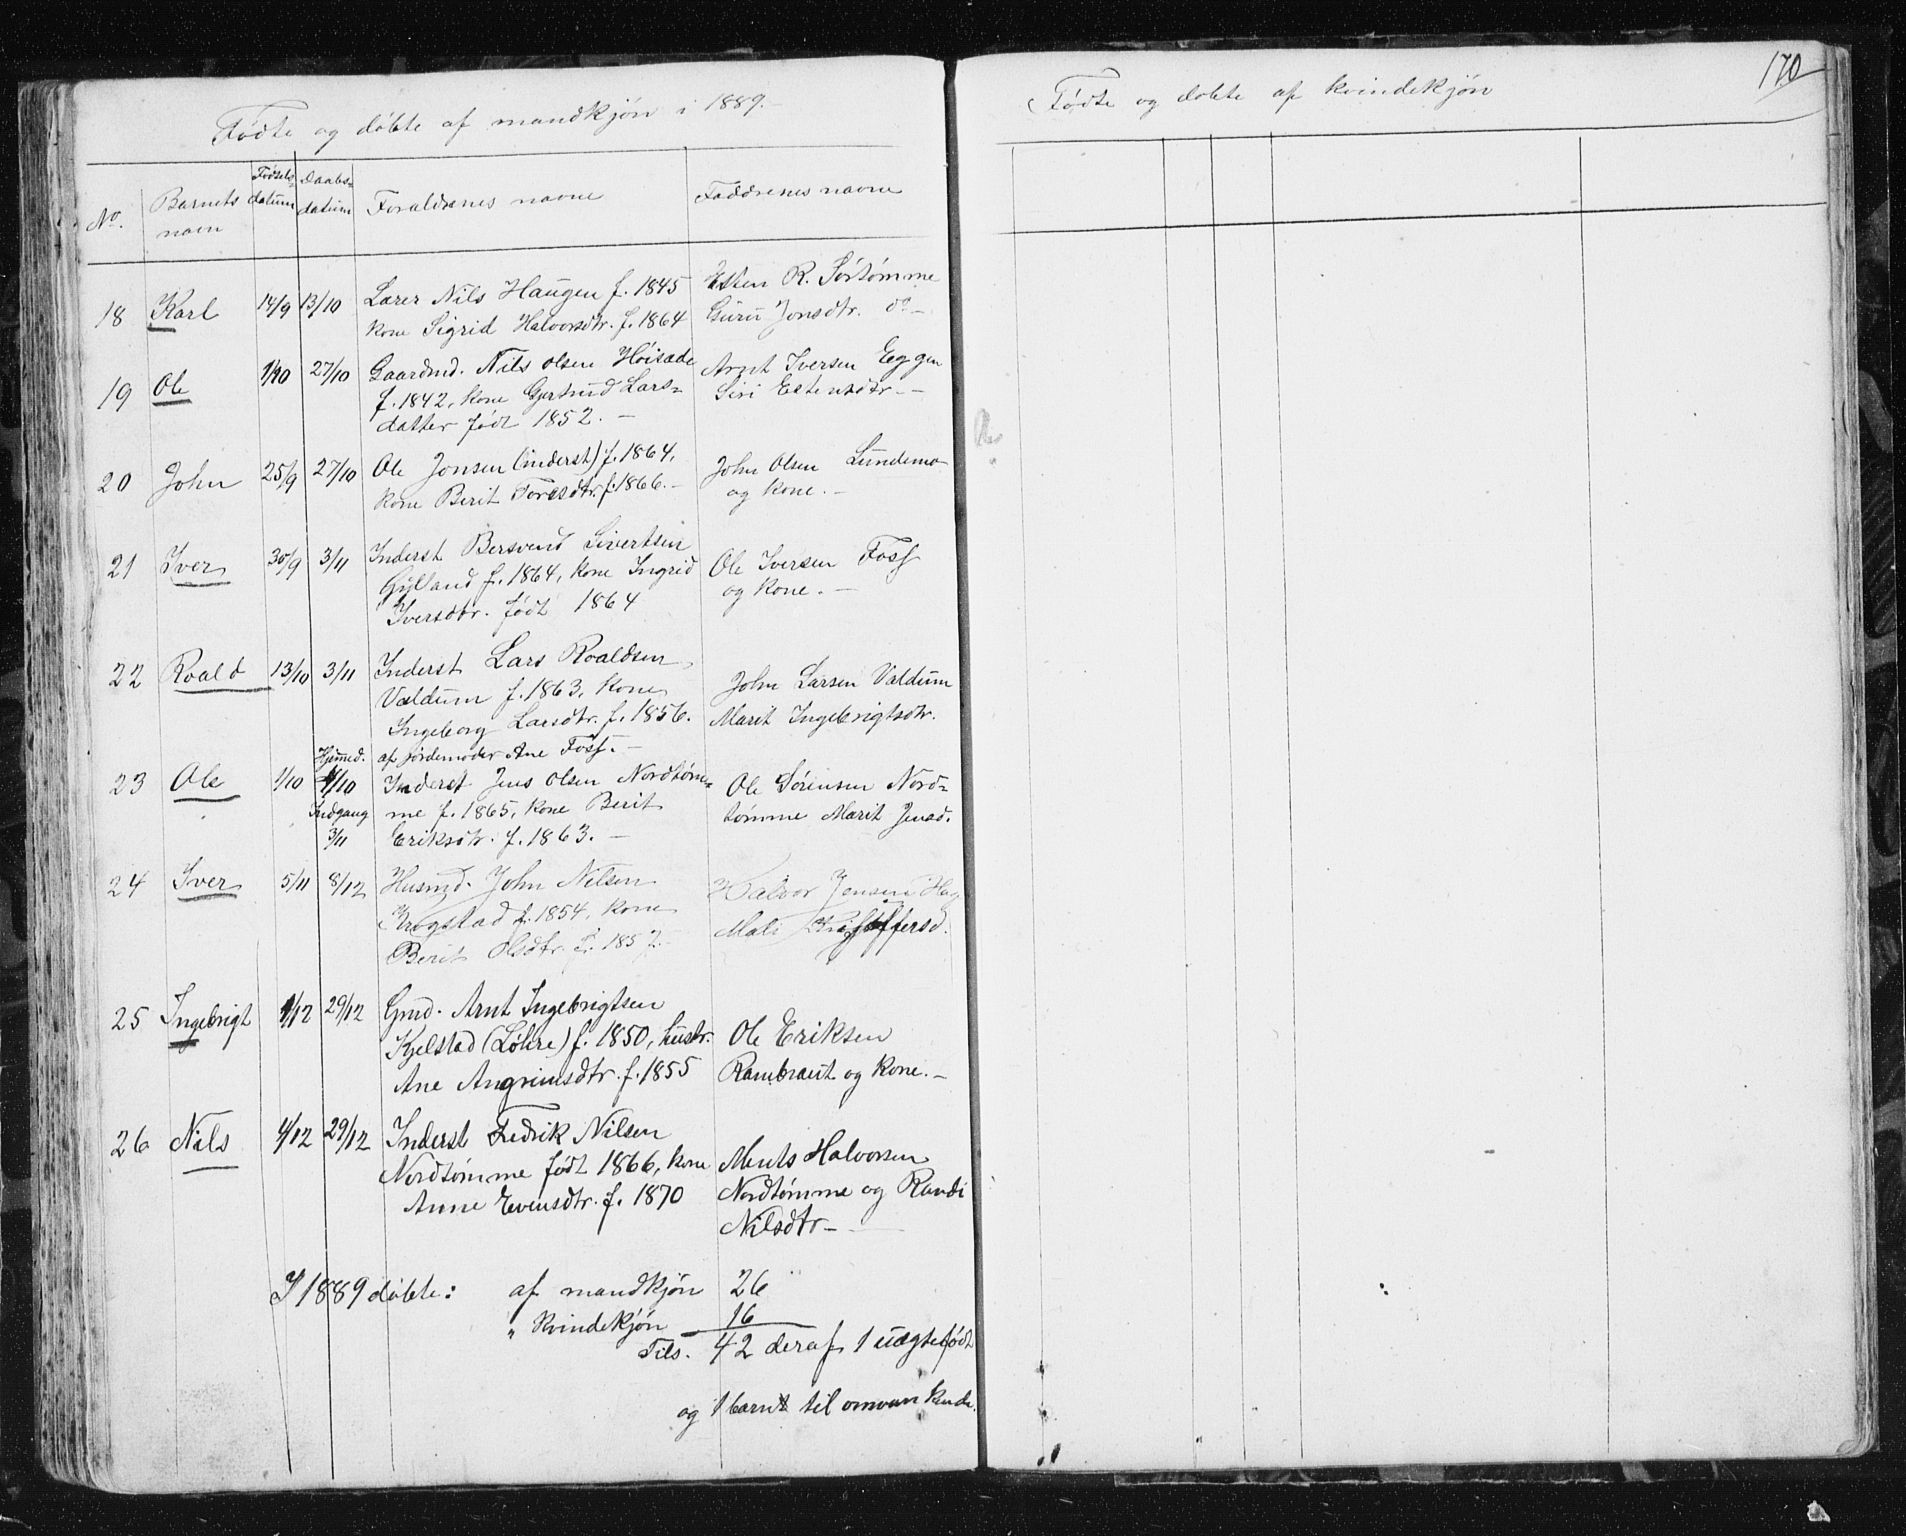 Fødte og døbte af mandkjøn i 1889.
No. Barnets navn Fødsels-datum Daabs-datum Forældrenes navne Faddrenes navne
18 Karl 14/9 13/10 Lærer Nils Haugen f. 1845 Esten R. Sørtømme
kone Sigrid Halvorsdtr. f. 1864 Guru Jonsdtr. do –
19 Ole 1/10 27/10 Gaardmd. Nils Olsen Høisæde Arnt Iversen Eggen
f. 1842, kone Gjertrud Lars- Siri Estensdtr. –
datter født 1852. –
20 John 25/9 27/10 Ole Jonsen (inderst) f. 1864, John Olsen Lundemo
kone Berit Toresdtr. f. 1866. – og kone. –
21 Iver 30/9 3/11 Inderst Bersvend Sivertsen Ole Iversen Foss
Gylland f. 1864, kone Ingrid og kone. –
Iversdtr. født 1864
22 Roald 13/10 3/11 Inderst Lars Roaldsen John Larsen Valdum
Valdum f. 1863, kone Marit Ingebrigtsdtr.
Ingeborg Larsdtr. f. 1856.
Hjemmed. af jordemoder Ane Foss. –
23 Ole 1/10 4/10 Inderst Jens Olsen Nordtøm- Ole Sørensen Nord-
Indgang me f. 1865, kone Berit tømme Marit Jensd.
3/11 Eriksdtr. f. 1863. –
24 Iver 5/11 8/12 Husmd. John Nilsen Halvor Jonsen Hag
Krogstad f. 1854, kone Mali Kristoffersd.
Berit Olsdtr. f. 1857.
25 Ingebrigt 1/12 29/12 Gmd. Arnt Ingebrigtsen
Kjelstad (Løhre) f. 1850, hustr. Ole Eriksen
Ane Angrimsdtr. f. 1855 Rambraut og kone. –
26 Nils 4/12 29/12 Inderst Fredrik Nilsen
Nordtømme født 1866, kone Ments Halvorsen
Anne Evensdtr. f. 1870 Nordtømme og Randi
Nilsdtr –
I 1889 døbte: af mandkjøn 26
" kvindekjøn 16
Tils. 42 deraf 1 uægtefødt
og 1 barn til omvankende.
Fødte og døbte af kvindekjøn
170